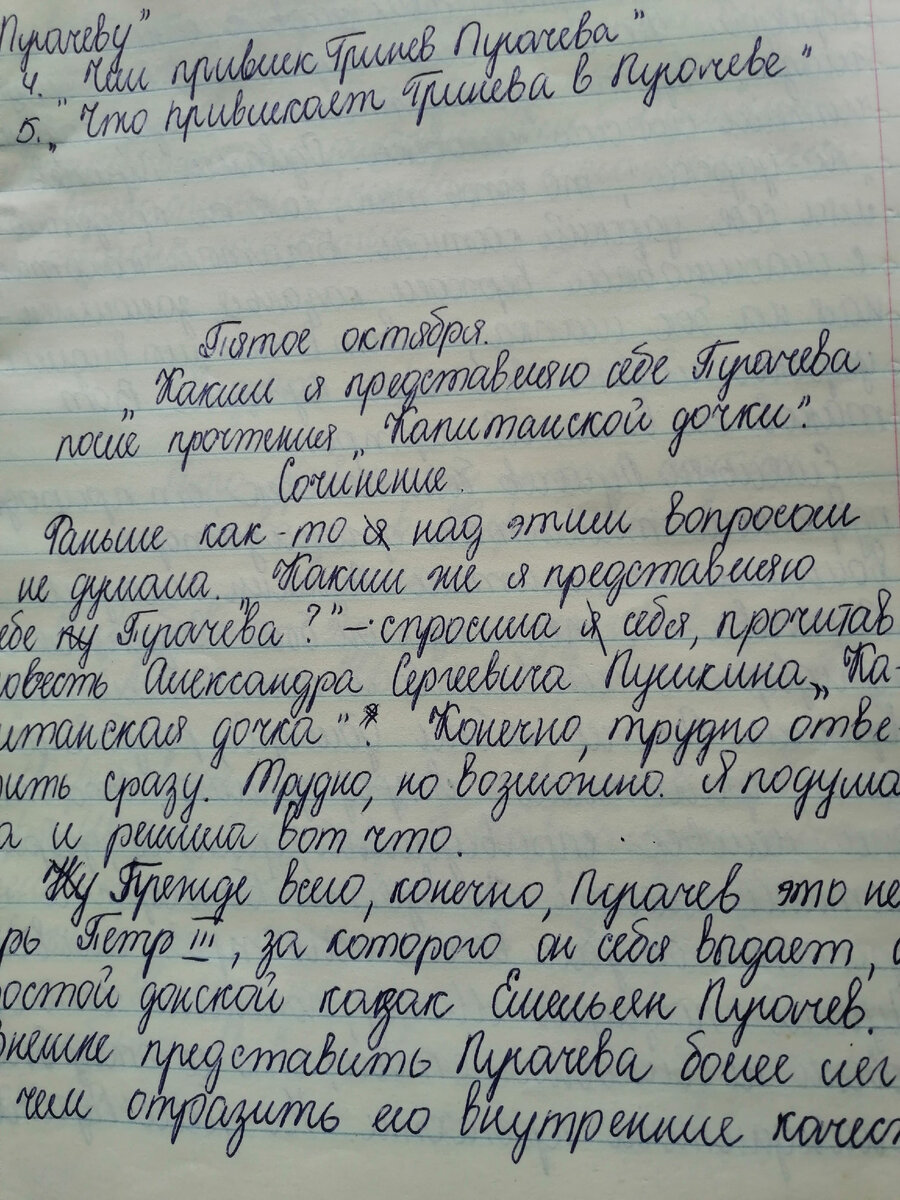 Пугачеву"
4. "Чем привлек Гринев Пугачева"
5. "Что привлекает Гринева в Пугачеве"
Пятое октября.
"Каким я представляю себе Пугачева
после прочтения "Капитанской дочки".
Сочинение.
Раньше как-то я над этим вопросом
не думала. "Каким же я представляю
ебе пу Пугачёва?" – спросила я себя, прочитав
овесть Александра Сергеевича Пушкина "Ка-
итанская дочка"? Конечно, трудно отве-
ить сразу. Трудно, но возможно. Я подума
а и решила вот что.
Ну Прежде всего, конечно, Пугачев это не
рь Петр III, за которого он себя выдает, а
ростой донской казак Емельян Пугачев.
Внешне представить Пугачева более лег
чем отразить его внутренние качест